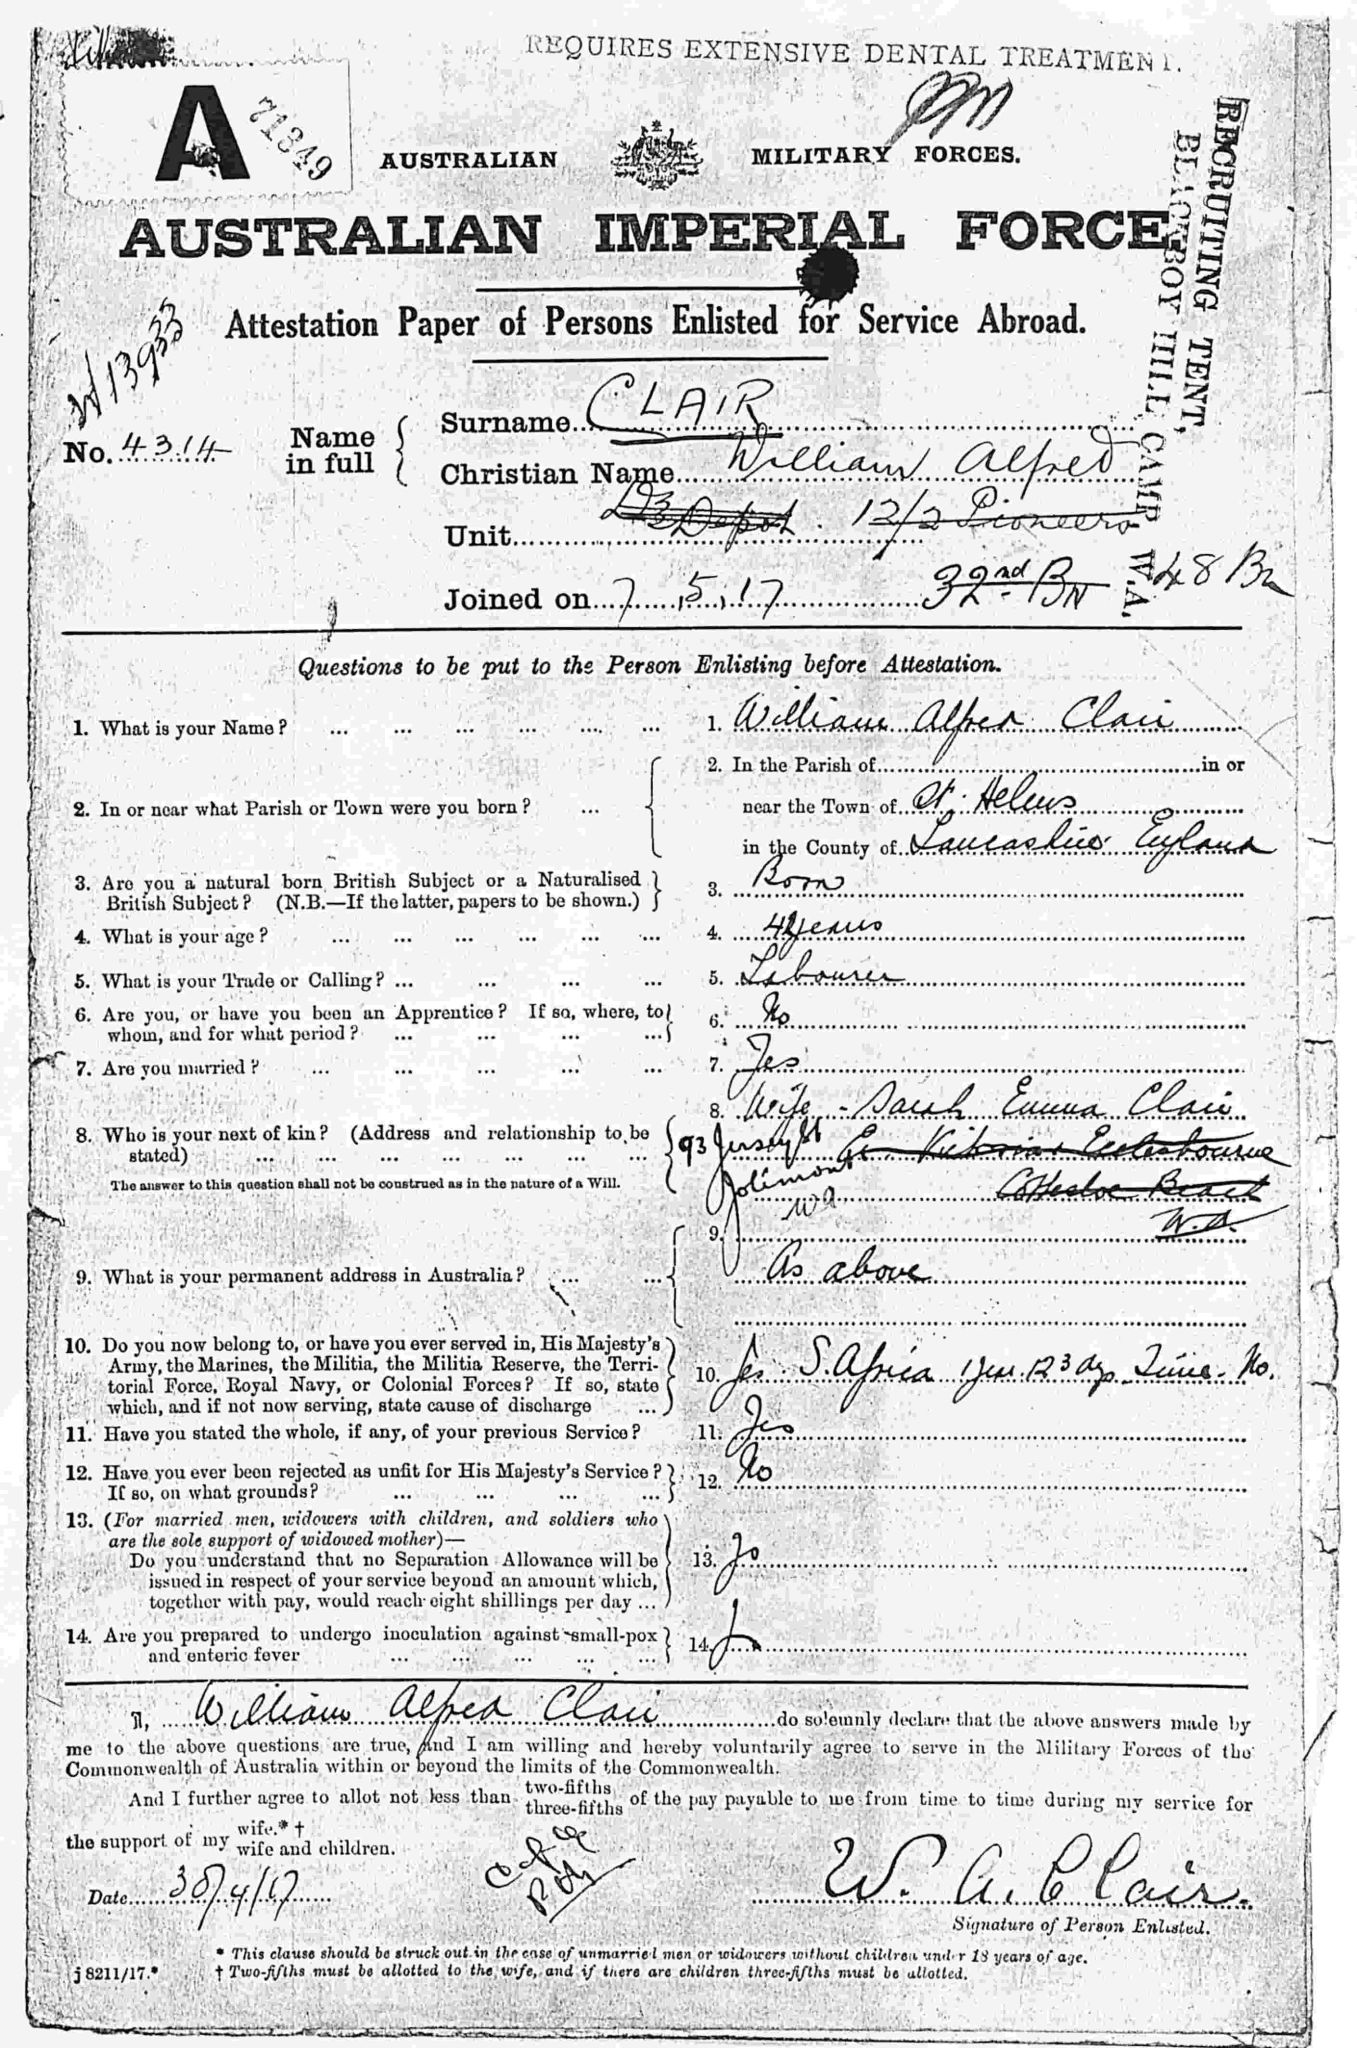 REQUIRES EXTENSIVE DENTAL TREATMENT.
A
71349
AUSTRALIAN MILITARY FORCES.
RECRUITING TENT,
BLACKBOY HILL CAMP W.A.
AUSTRALIAN IMPERIAL FORCE
Attestation Paper of Persons Enlisted for Service Abroad.
13933
No. 4314
Name in full
Surname CLAIR
Christian Name William Alfred
Unit Depot. 12/2 Pioneers
Joined on 7.5.17 32nd Bn 48 Bn
Questions to be put to the Person Enlisting before Attestation.
1. What is your Name? ... ... ... ... ... ... 1. William Alfred Clair
2. In or near what Parish or Town were you born? ...
2. In the Parish of in or
near the Town of St. Helens
in the County of Lancashire England
3. Are you a natural born British Subject or a Naturalised
British Subject? (N.B.—If the latter, papers to be shown.)
3. Born
4. What is your age? ... ... ... ... ... ... 4. 42 years
5. What is your Trade or Calling? ... ... ... ... 5. Labourer
6. Are you, or have you been an Apprentice? If so, where, to
whom, and for what period? ... ... ... ...
6. No
7. Are you married? ... ... ... ... ... ... 7. Yes
8. Wife - Sarah Emma Clair
8. Who is your next of kin? (Address and relationship to be
stated) ... ... ... ... ... ... ...
The answer to this question shall not be construed as in the nature of a Will.
93 Jersey St
Jolimont
WA
Victoria Ecclesbourne
Cottesloe Beach
W.A.
9.
9. What is your permanent address in Australia? ... ...
As above
10. Do you now belong to, or have you ever served in, His Majesty's
Army, the Marines, the Militia, the Militia Reserve, the Terri-
torial Force, Royal Navy, or Colonial Forces? If so, state
which, and if not now serving, state cause of discharge ...
10. Yes S. Africa 1 year 123 dys. Time. No.
11. Have you stated the whole, if any, of your previous Service? 11. Yes
12. Have you ever been rejected as unfit for His Majesty's Service?
If so, on what grounds? ... ... ... ...
12. No
13. (For married men, widowers with children, and soldiers who
are the sole support of widowed mother)—
Do you understand that no Separation Allowance will be
issued in respect of your service beyond an amount which,
together with pay, would reach eight shillings per day ...
13.
14. Are you prepared to undergo inoculation against small-pox
and enteric fever ... ... ... ... ...
14.
I, William Alfred Clair do solemnly declare that the above answers made by
me to the above questions are true, and I am willing and hereby voluntarily agree to serve in the Military Forces of the
Commonwealth of Australia within or beyond the limits of the Commonwealth.
And I further agree to allot not less than two-fifths three-fifths of the pay payable to me from time to time during my service for
the support of my wife.* † wife and children.
Date 30/4/17
W. A. Clair.
Signature of Person Enlisted.
* This clause should be struck out in the case of unmarried men or widowers without children under 18 years of age.
† Two-fifths must be allotted to the wife, and if there are children three-fifths must be allotted.
j 8211/17.*